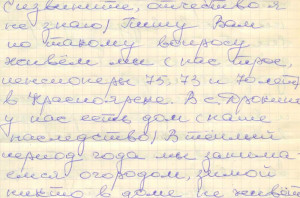 (извините, отчество я
не знаю) Пишу Вам
по такому вопросу
живём мы (нас трое,
пенсионеры 75, 73 и 70 лет)
в Красноярске. В с.
у нас есть дом (наше
наследство) В теплый
период года мы занима-
емся огородом, зимой
никто в доме не живёт